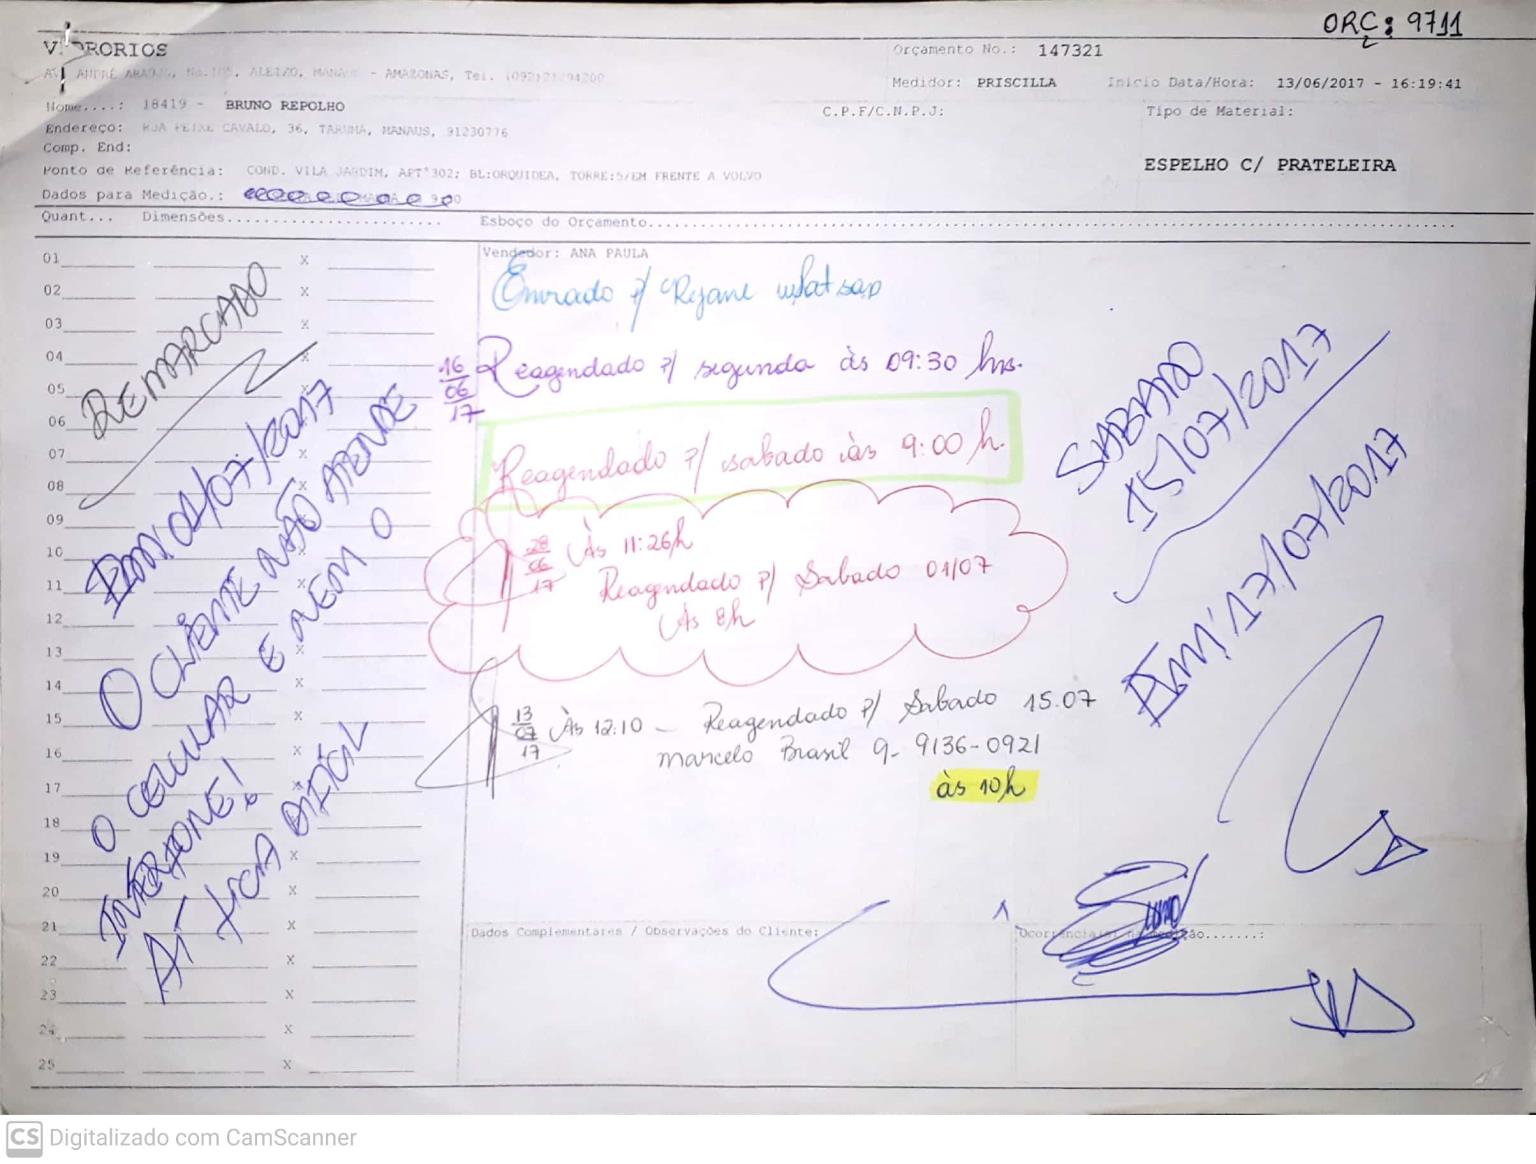 ORÇ: 9711
VIDRORIOS
Orçamento No.: 147321
AV. ANDRÉ ARAÚJO, ALEIXO, MANAUS - AMAZONAS, Tel.
Medidor: PRISCILLA
Inicio Data/Hora: 13/06/2017 - 16:19:41
Nome....: 18419 - BRUNO REPOLHO
C.P.F/C.N.P.J:
Tipo de Material:
Endereço: RUA PEIXE CAVALO, 36, TARUMÃ, MANAUS, 91230776
Comp. End:
ESPELHO C/ PRATELEIRA
Ponto de Referência: COND. VILA JARDIM, APT°302; BL:ORQUIDEA, TORRE:5/EM FRENTE A VOLVO
Dados para Medição.:
Quant... Dimensões...........................
Esboço do Orçamento.......................................................................
Vendedor: ANA PAULA
01 X
02 X
03 X
04 X
05
06
07
08 X
09
10 X
11 X
12
13 X
14 X
15 X
16 X
17 X
18
19 X
20 X
21 X
22 X
23 X
24 X
25 X
REMARCADO
EM: 01/07/2017
O CLIENTE NÃO ATENDE
O CELULAR E NEM O
INTERFONE!
AÍ FICA DIFÍCIL
Enviado p/ Rejane whatsap
16/06/17 Reagendado p/ segunda às 09:30 hrs.
Reagendado p/ sabado às 9:00 h.
28/06/17 Às 11:26h
Reagendado p/ Sabado 01/07
Às 8h
13/07/17 Às 12:10 - Reagendado p/ Sabado 15.07
Marcelo Brasil 9-9136-0921
às 10h
SABADO
15/07/2017
EM: 17/07/2017
Dados Complementares / Observações do Cliente:
Ocorrência(s) na medição.......:
CS Digitalizado com CamScanner